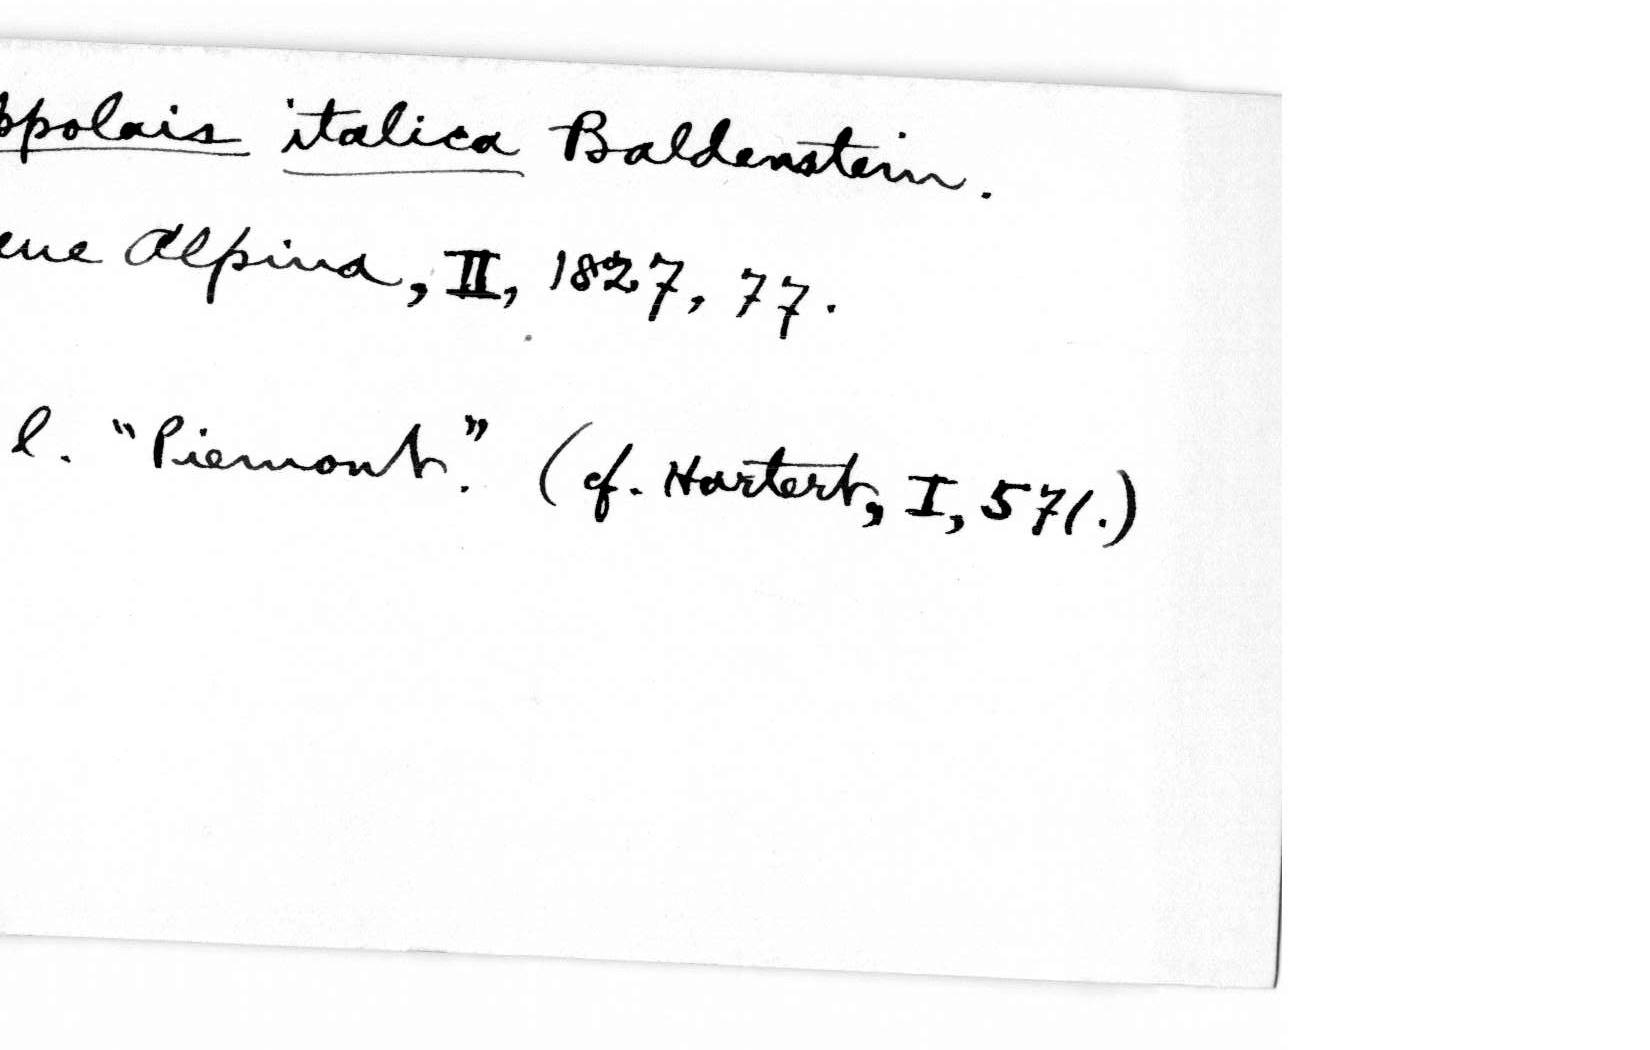 ppolais italica Baldenstein.
eue Alpina, II, 1827, 77.
l. "Piemont." (cf. Hartert, I, 571.)